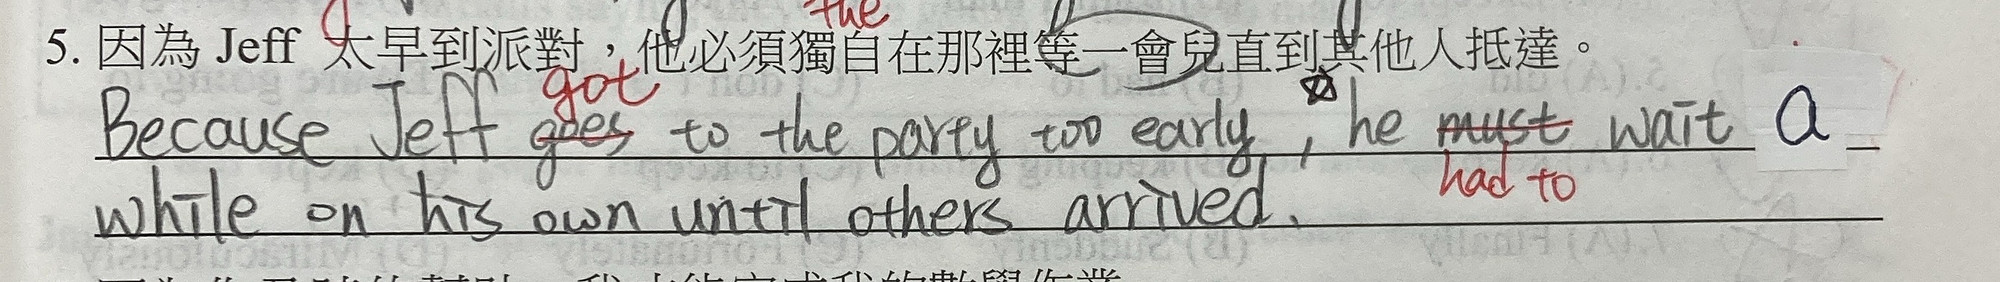 the
5. 因為 Jeff 太早到派對，他必須獨自在那裡等一會兒直到其他人抵達。
got
Because Jeff goes to the party too early, he must wait a
had to
while on his own until others arrived.